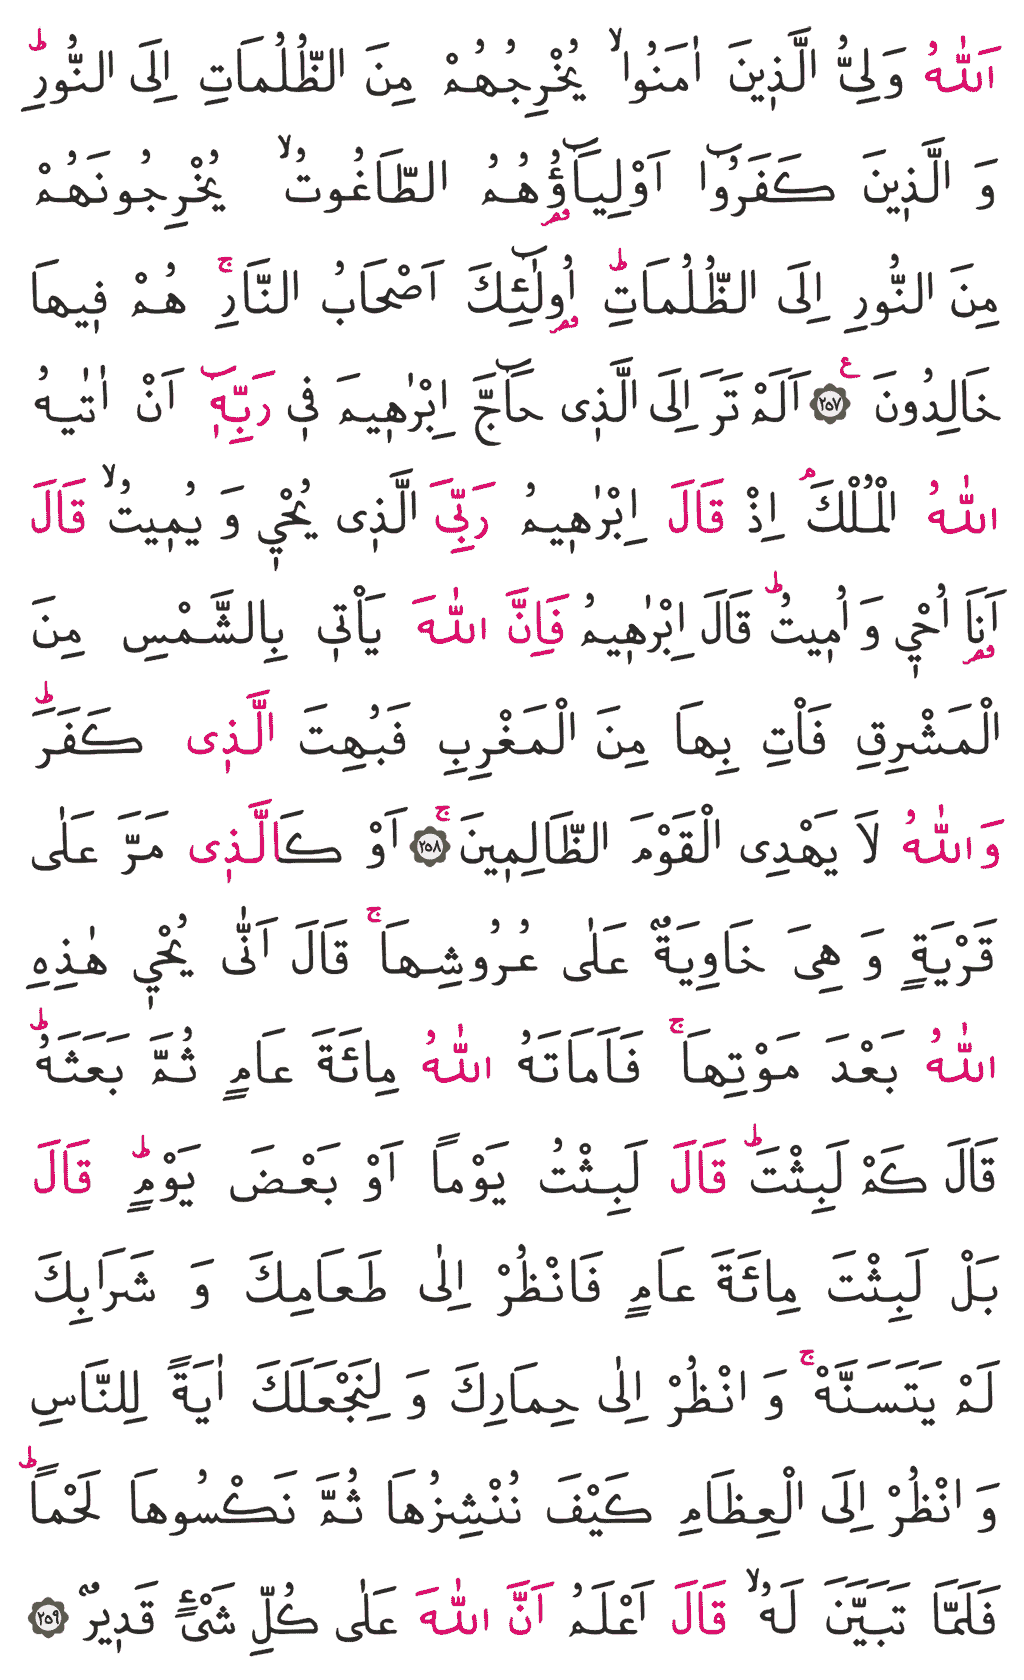 اَللّٰهُ وَلِىُّ الَّذٖينَ اٰمَنُواۙ يُخْرِجُهُمْ مِنَ الظُّلُمَاتِ اِلَى النُّورِؕ
وَ الَّذٖينَ كَفَرُٓوا اَوْلِيَٓاؤُ۬هُمُ الطَّاغُوتُۙ يُخْرِجُونَهُمْ
مِنَ النُّورِ اِلَى الظُّلُمَاتِؕ اُو۬لٰٓئِكَ اَصْحَابُ النَّارِۚ هُمْ فٖيهَا
خَالِدُونَ ﴿٢٥٧﴾ ع اَلَمْ تَرَ اِلَى الَّذٖى حَٓاجَّ اِبْرٰهٖيمَ فٖى رَبِّهٖٓ اَنْ اٰتٰيهُ
اللّٰهُ الْمُلْكَۘ اِذْ قَالَ اِبْرٰهٖيمُ رَبِّىَ الَّذٖى يُحْيٖ وَ يُمٖيتُۙ قَالَ
اَنَا۬ اُحْيٖ وَ اُمٖيتُؕ قَالَ اِبْرٰهٖيمُ فَاِنَّ اللّٰهَ يَاْتٖى بِالشَّمْسِ مِنَ
الْمَشْرِقِ فَاْتِ بِهَا مِنَ الْمَغْرِبِ فَبُهِتَ الَّذٖى كَفَرَؕ
وَاللّٰهُ لَا يَهْدِى الْقَوْمَ الظَّالِمٖينَۚ ﴿٢٥٨﴾ اَوْ كَالَّذٖى مَرَّ عَلٰى
قَرْيَةٍ وَ هِىَ خَاوِيَةٌ عَلٰى عُرُوشِهَاۚ قَالَ اَنّٰى يُحْيٖ هٰذِهِ
اللّٰهُ بَعْدَ مَوْتِهَاۚ فَاَمَاتَهُ اللّٰهُ مِائَةَ عَامٍ ثُمَّ بَعَثَهُؕ
قَالَ كَمْ لَبِثْتَؕ قَالَ لَبِثْتُ يَوْماً اَوْ بَعْضَ يَوْمٍؕ قَالَ
بَلْ لَبِثْتَ مِائَةَ عَامٍ فَانْظُرْ اِلٰى طَعَامِكَ وَ شَرَابِكَ
لَمْ يَتَسَنَّهْۚ وَ انْظُرْ اِلٰى حِمَارِكَ وَ لِنَجْعَلَكَ اٰيَةً لِلنَّاسِ
وَ انْظُرْ اِلَى الْعِظَامِ كَيْفَ نُنْشِزُهَا ثُمَّ نَكْسُوهَا لَحْماًؕ
فَلَمَّا تَبَيَّنَ لَهُۙ قَالَ اَعْلَمُ اَنَّ اللّٰهَ عَلٰى كُلِّ شَىْءٍ قَدٖيرٌ ﴿٢٥٩﴾